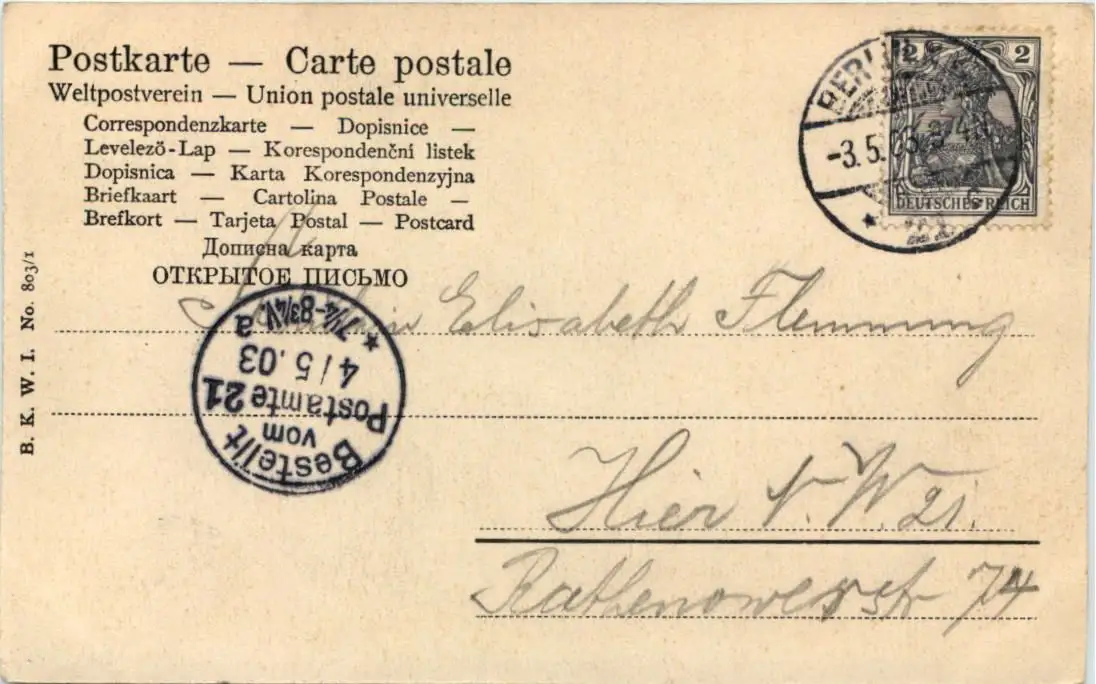 Postkarte — Carte postale
Weltpostverein — Union postale universelle
Correspondenzkarte — Dopisnice —
Levelező-Lap — Korespondenční listek
Dopisnica — Karta Korespondenzyjna
Briefkaart — Cartolina Postale —
Brefkort — Tarjeta Postal — Postcard
Дописна карта
ОТКРЫТОЕ ПИСЬМО
B. K. W. I. No. 803/1
2 2
DEUTSCHES REICH
BERLIN
-3.5.03.
Elisabeth Flemming
Hier N.W. 21.
Rathenowerstr 74
Bestellt
vom
Postamte 21
4/5.03
7¼-8¾V.
a